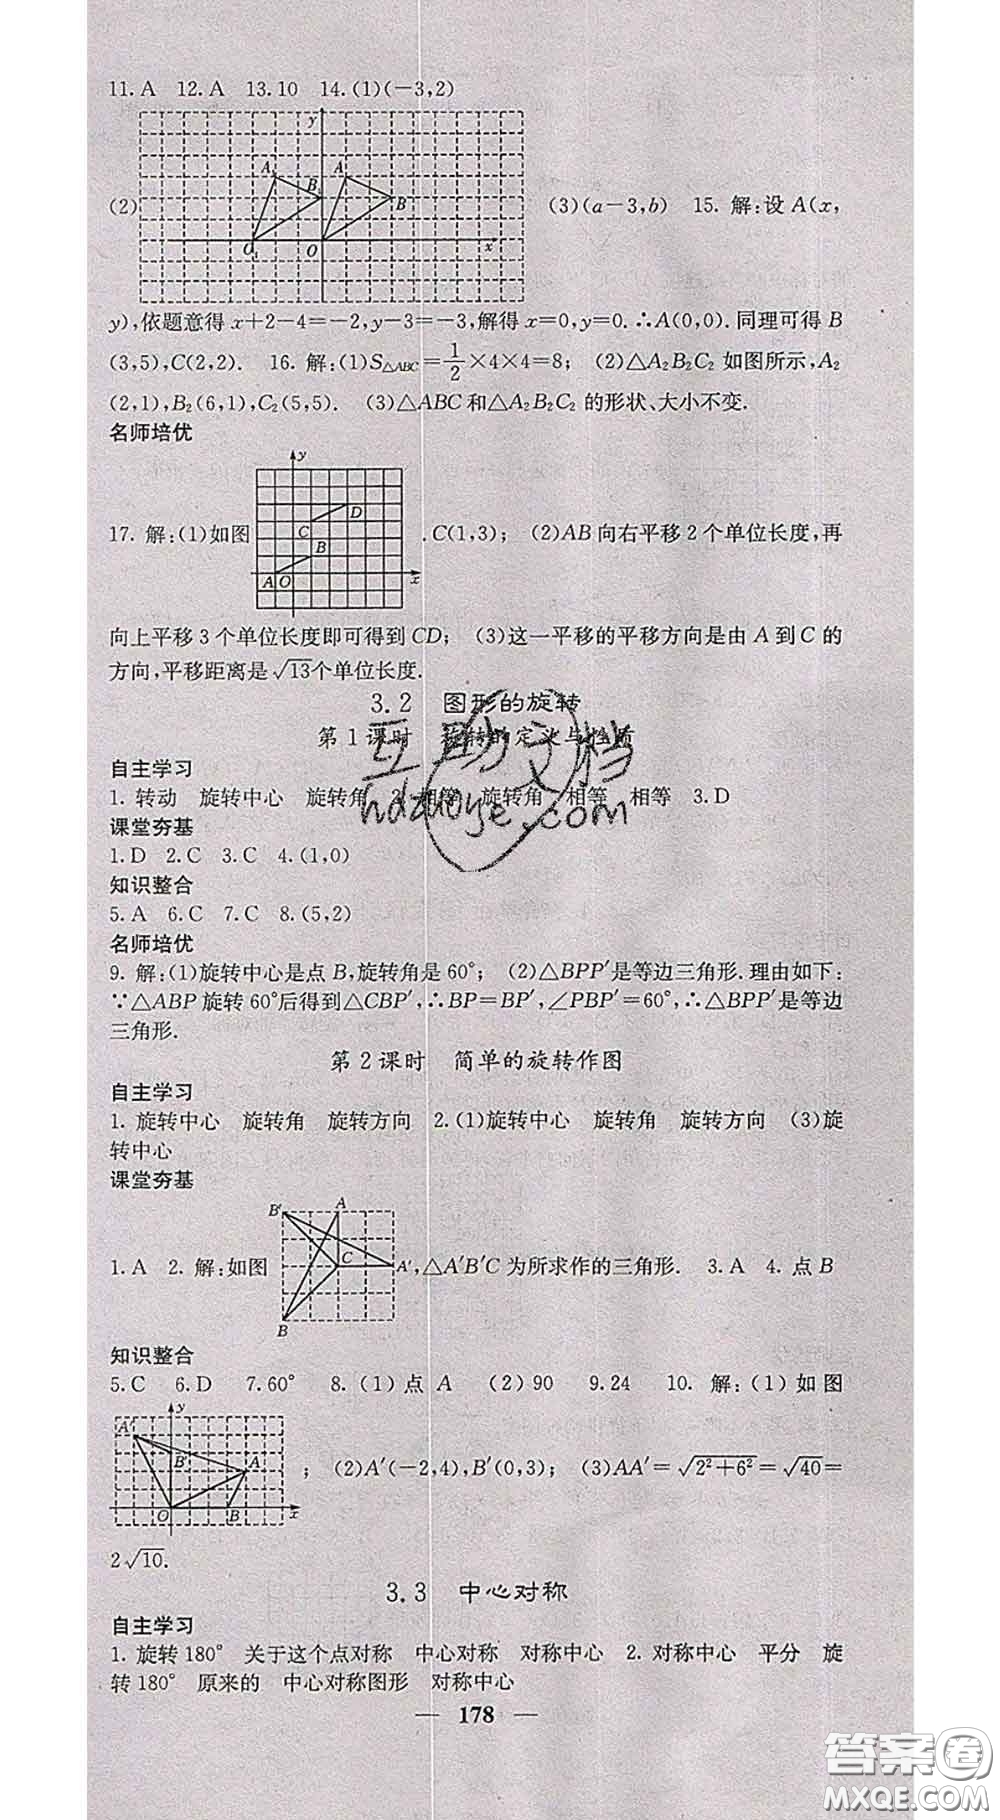 11. A 12. A 13. 10 14. (1)(-3,2)
y
A₁ A
B₁
B
(2)
O₁ O x
(3)(a-3,b) 15. 解:设A(x,
y),依题意得x+2-4=-2,y-3=-3,解得x=0,y=0.∴A(0,0).同理可得B
(3,5),C(2,2). 16. 解:(1)S△ABC=1/2×4×4=8; (2)△A₂B₂C₂如图所示,A₂
(2,1),B₂(6,1),C₂(5,5). (3)△ABC和△A₂B₂C₂的形状、大小不变.
名师培优
y
D
C
B
A O x
17. 解:(1)如图 .C(1,3); (2)AB向右平移2个单位长度,再
向上平移3个单位长度即可得到CD; (3)这一平移的平移方向是由A到C的
方向,平移距离是√13个单位长度.
3.2 图形的旋转
第1课时 旋转的定义与性质
互助文档
hdzuoye.com
自主学习
1. 转动 旋转中心 旋转角 2. 相等 旋转角 相等 相等 3. D
课堂夯基
1. D 2. C 3. C 4. (1,0)
知识整合
5. A 6. C 7. C 8. (5,2)
名师培优
9. 解:(1)旋转中心是点B,旋转角是60°; (2)△BPP′是等边三角形.理由如下:
∵△ABP旋转60°后得到△CBP′,∴BP=BP′,∠PBP′=60°,∴△BPP′是等边
三角形.
第2课时 简单的旋转作图
自主学习
1. 旋转中心 旋转角 旋转方向 2. (1)旋转中心 旋转角 旋转方向 (3)旋
转中心
课堂夯基
B′ A
C A′
B
1. A 2. 解:如图 ,△A′B′C为所求作的三角形. 3. A 4. 点B
知识整合
5. C 6. D 7. 60° 8. (1)点A (2)90 9. 24 10. 解:(1)如图
y
A′
B′ A
O B x
; (2)A′(-2,4),B′(0,3); (3)AA′=√(2²+6²)=√40=
2√10.
3.3 中心对称
自主学习
1. 旋转180° 关于这个点对称 中心对称 对称中心 2. 对称中心 平分 旋
转180° 原来的 中心对称图形 对称中心
— 178 —
答案圈
MXQE.COM